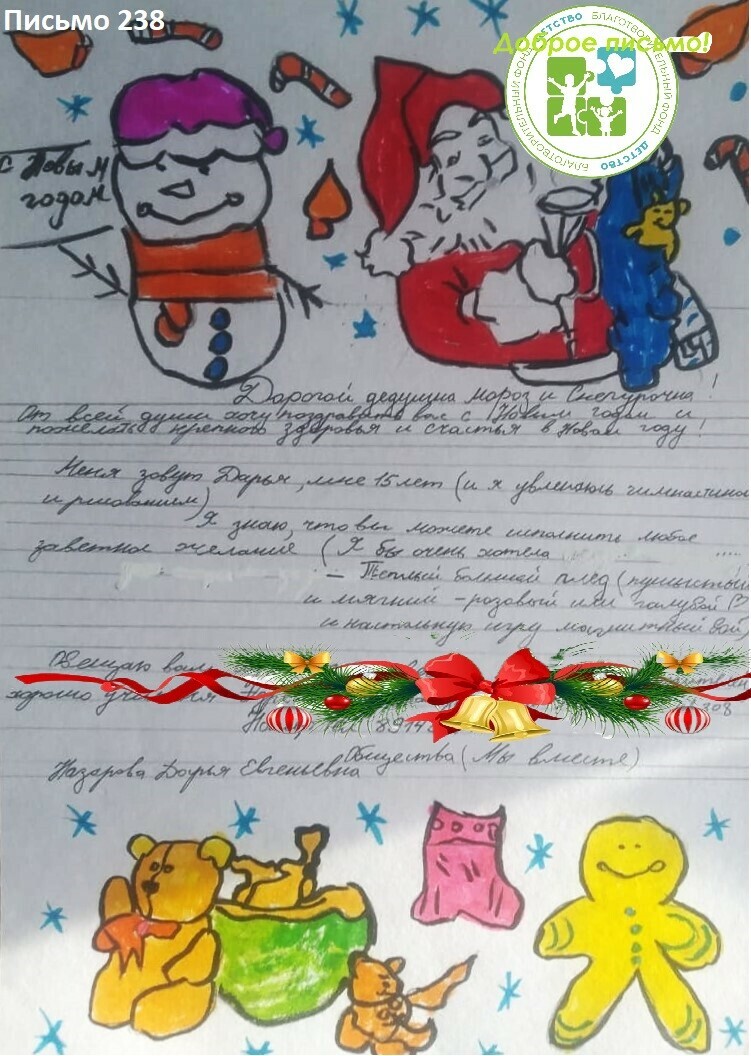 Письмо 238
Доброе письмо!
БЛАГОТВОРИТЕЛЬНЫЙ ФОНД ДЕТСТВО БЛАГОТВОРИТЕЛЬНЫЙ ФОНД ДЕТСТВО
С Новым
годом
Дорогой дедушка мороз и Снегурочка!
От всей души хочу поздравить вас с Новым годом и
пожелать крепкого здоровья и счастья в Новом году!
Меня зовут Дарья, мне 15 лет (и я увлекаюсь гимнастикой
и рисованием)
Я знаю, что вы можете исполнить любое
заветное желание (Я бы очень хотела .....
- Теплый большой плед (пушистый
и мягкий - розовый или голубой
и настольную игру магнитный бой)
Обещаю вам
хорошо учиться
Назарова Дарья Евгеньевна Общества (Мы вместе)